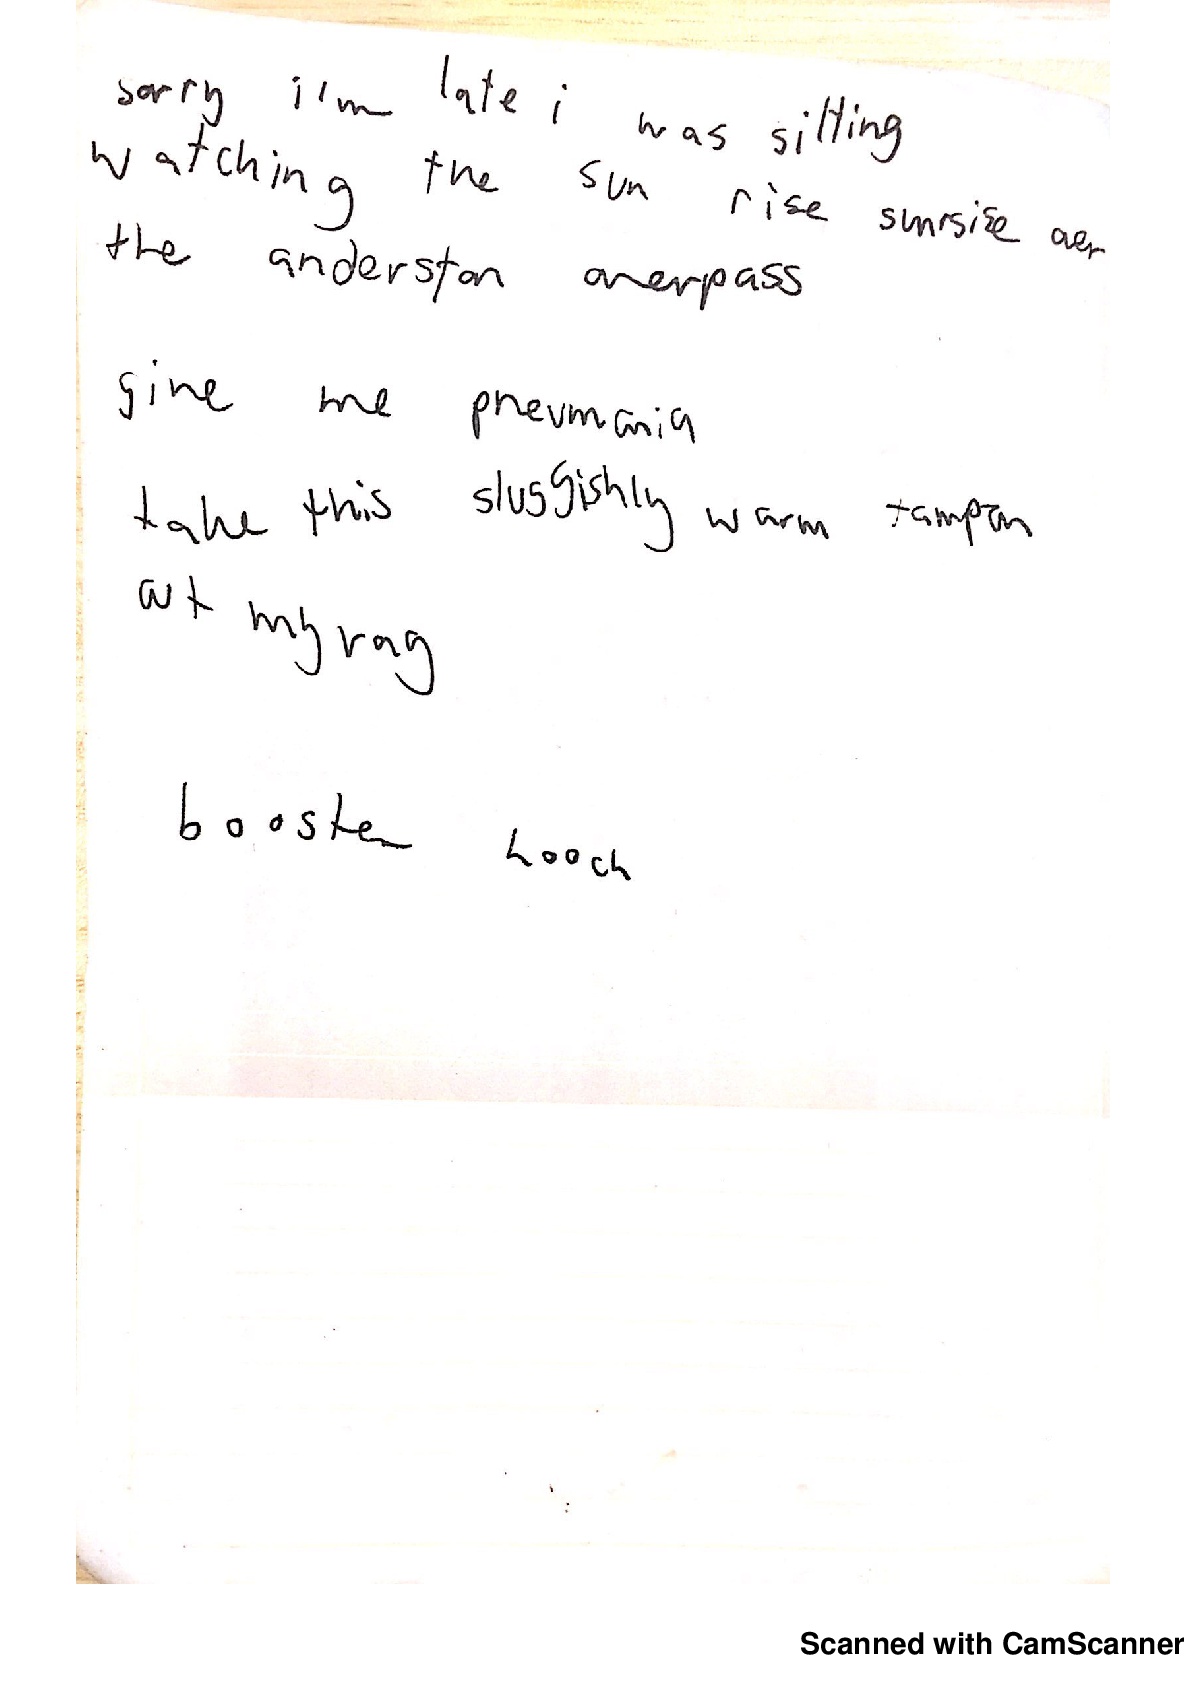 sorry i'm late i was sitting
watching the sun rise sunrsise over
the anderston overpass
give me pneumonia
take this sluggishly warm tampon
out my vag
booster hooch
Scanned with CamScanner